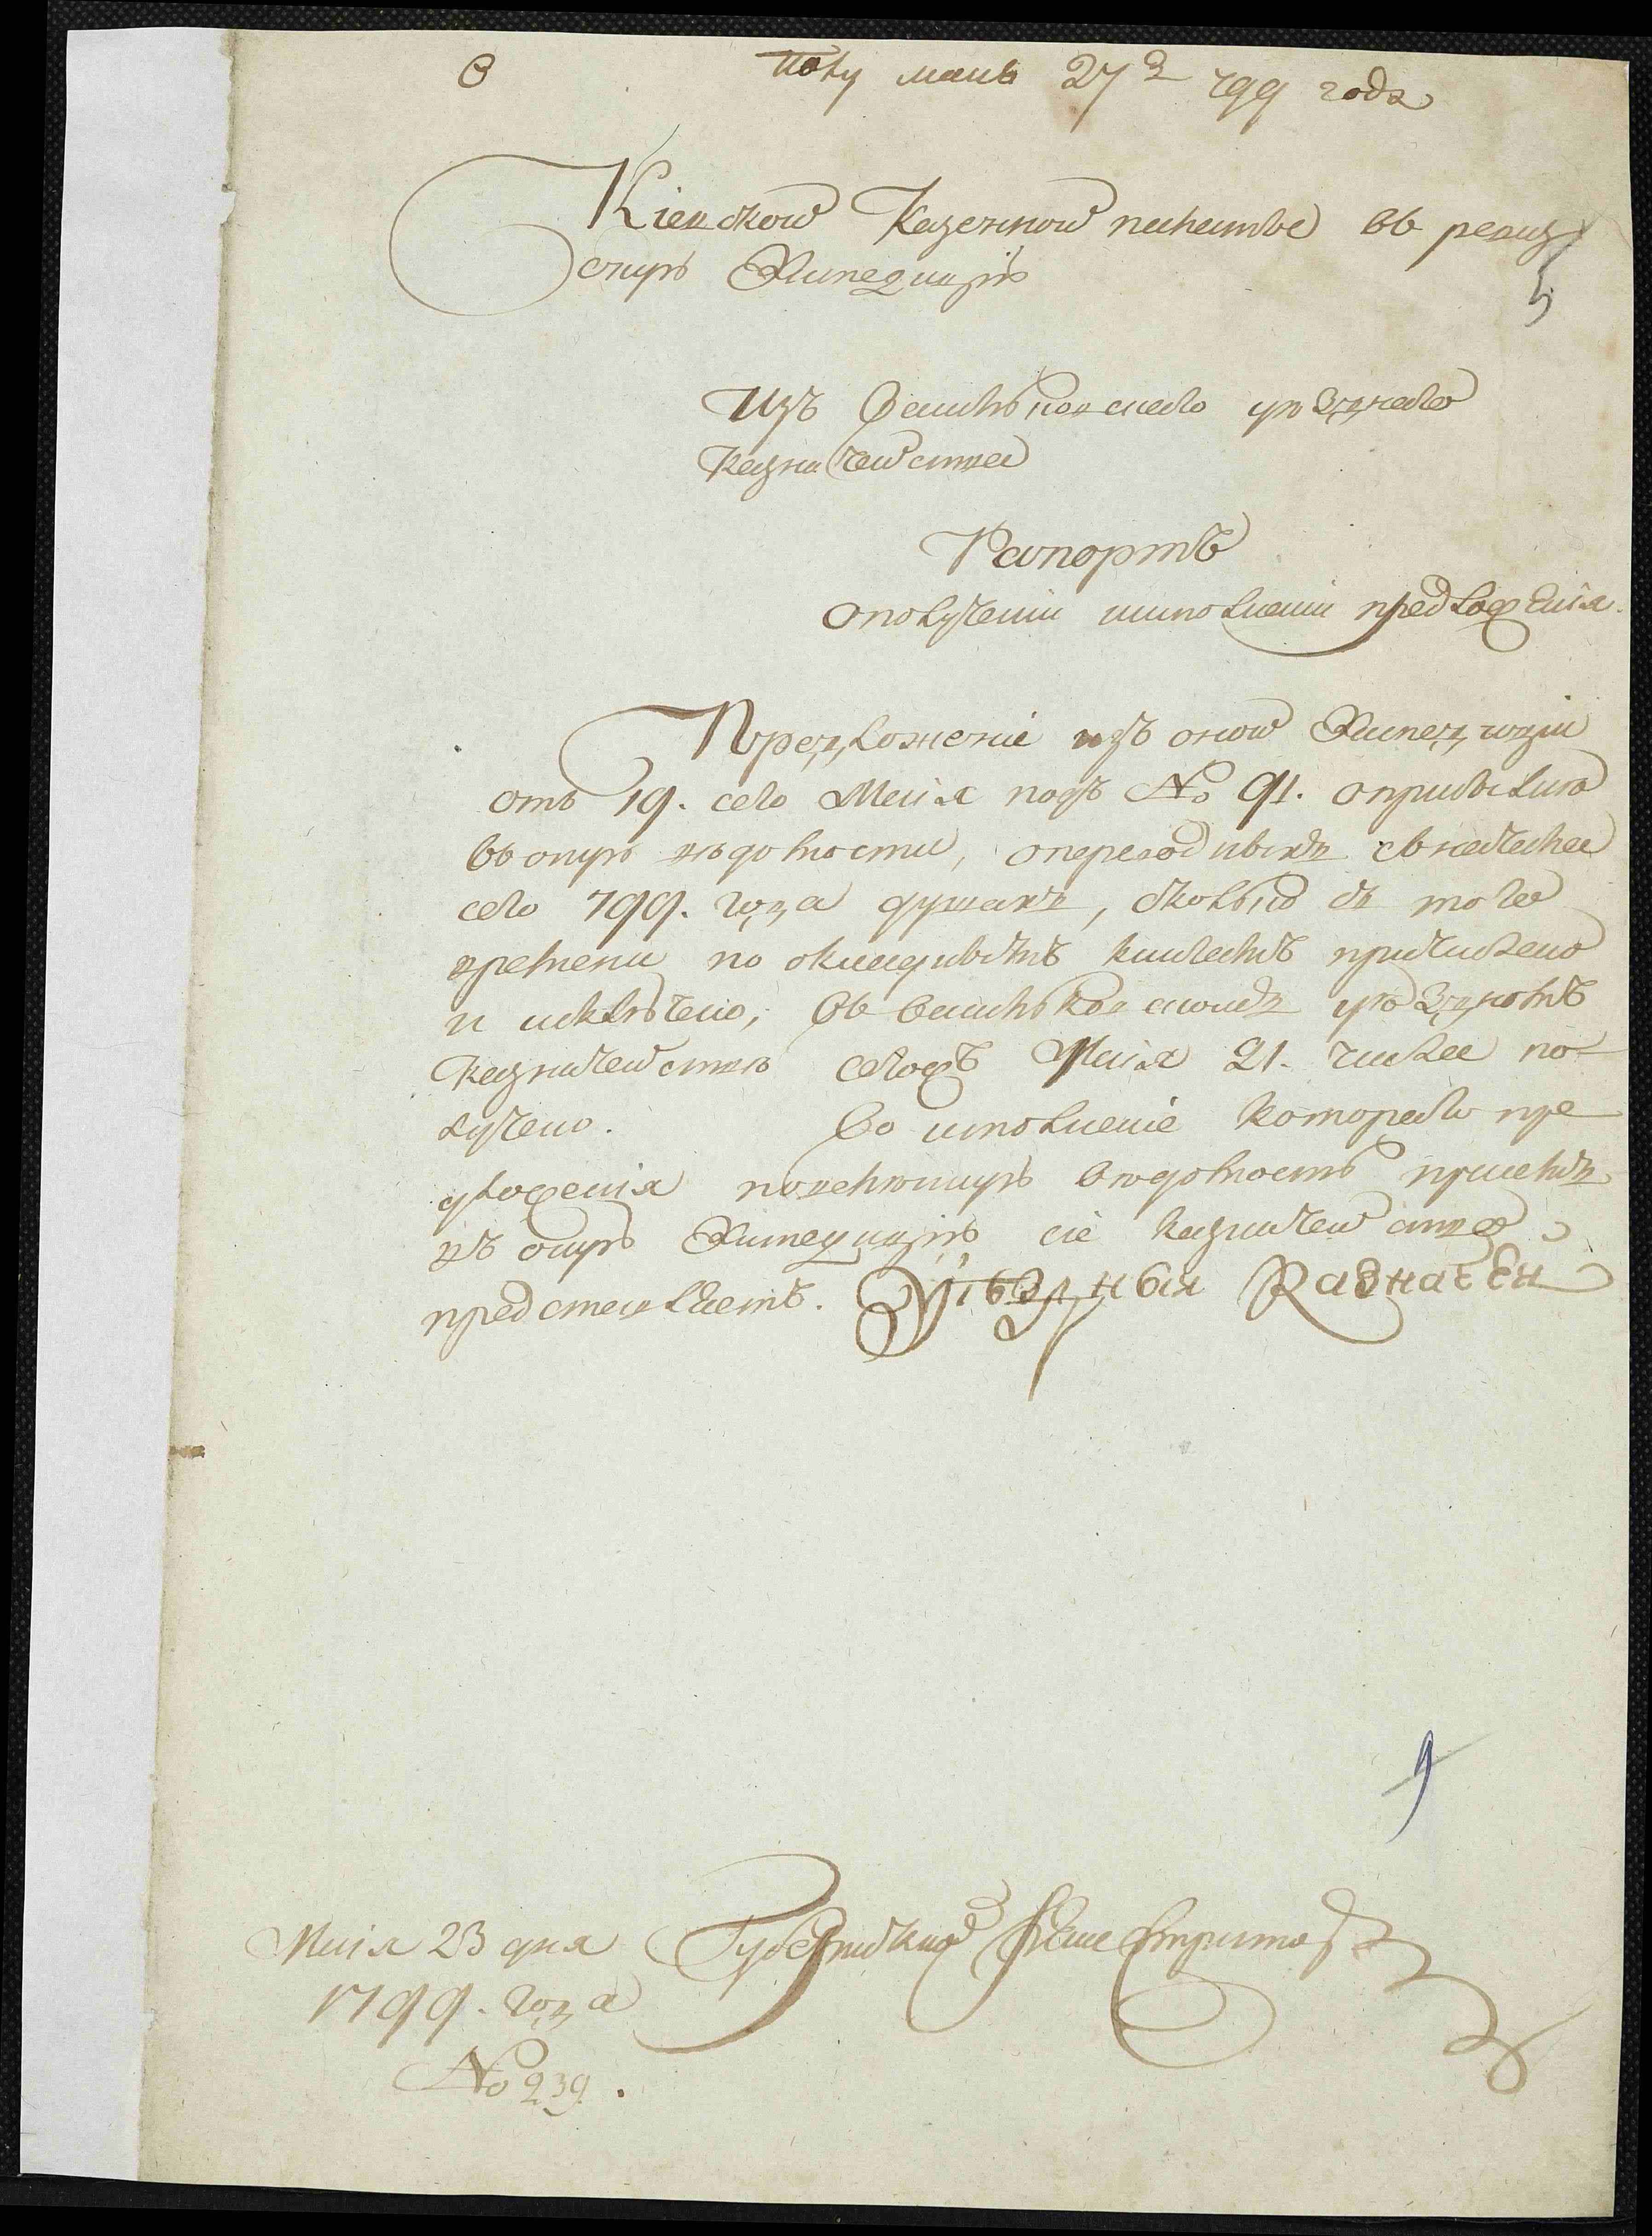 полу маия 27г 799 года
Кіевской Казенной палаты въ ревиз
скую Экспедицію
5
Изъ Васильковскаго уѣзднаго
Казначейства
Рапортъ
о получении и исполнении предложенія.
Предложеніе изъ оной Экспедиціи
отъ 19. сего Маія подъ № 91. о присылкѣ
въ оную вѣдомости, о переходныхъ съ начала
сего 799. года душахъ, сколько съ того
времени по окладнымъ книгамъ причислено
и исключено, въ Васильковскомъ уѣздномъ
Казначействѣ сегожъ Маія 21. числа по-
лучено. Во исполненіе котораго пре
дложенія повеленную вѣдомость при семъ
въ оную Экспедицію сіе казначейство
представляетъ. Уѣздный Казначей
9
Маія 23 дня Губернский
1799. года
№ 239.